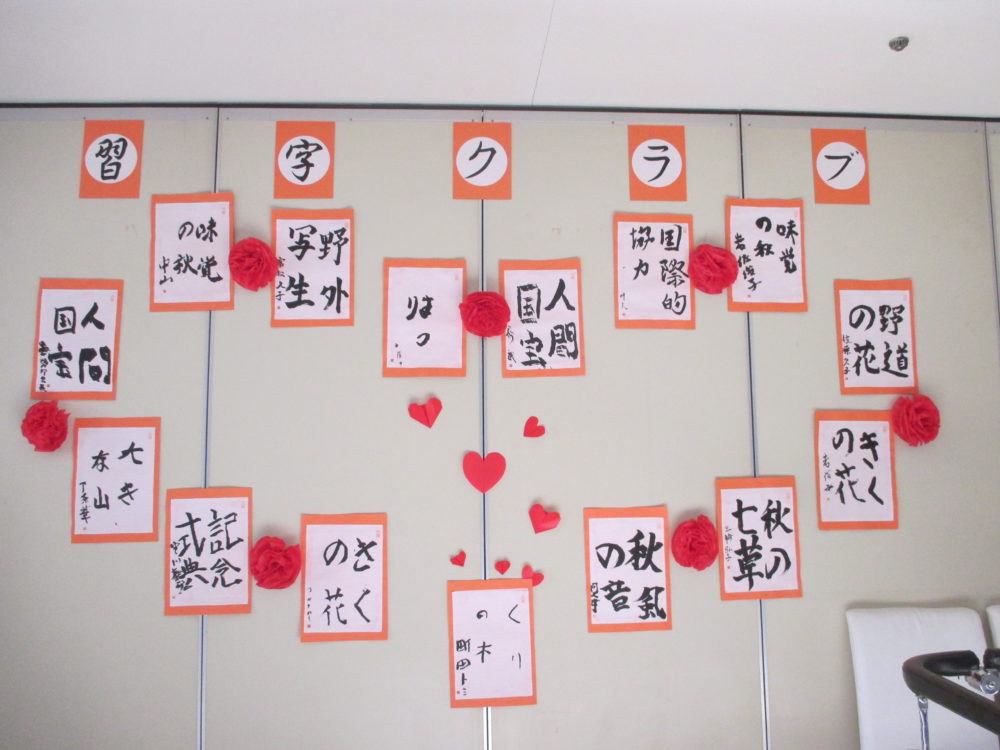 習字クラブ
味覚
の秋
中山
野外
写生
人間
国宝
国際的
協力
味覚
の秋
人間
国宝
野道
の花
佐藤久子
大き
な山
きく
の花
記念
式典
きく
の花
秋風
の音
秋の
七草
くり
の木
町田トミ